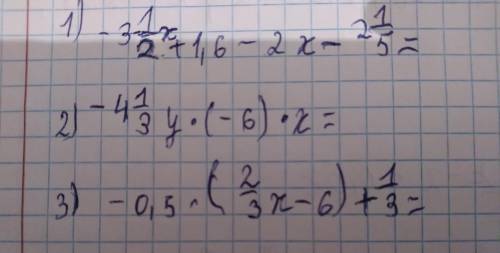 1) - 3 1/2 x + 1,6 - 2x - 2 1/5 =
2) - 4 1/3 y · (-6) · x =
3) - 0,5 · (2/3 x - 6) + 1/3 =